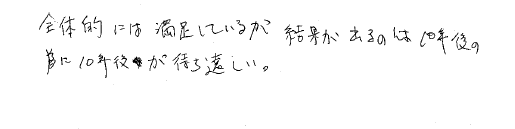 全体的には満足しているが 結果が出るのは10年後の
に10年後が待ち遠しい。